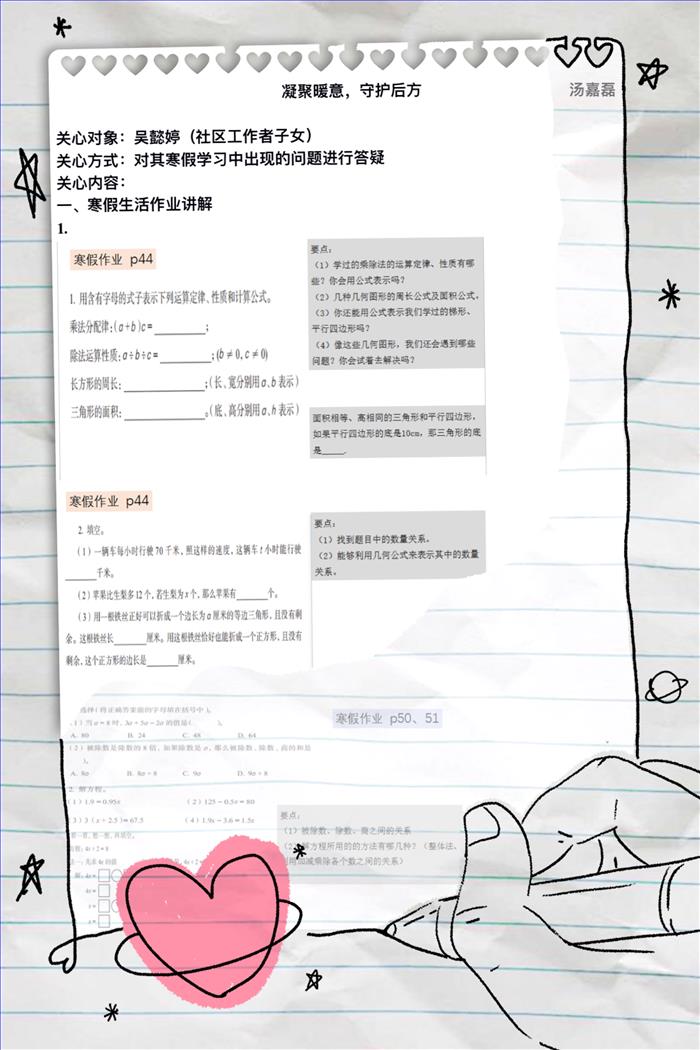 凝聚暖意，守护后方
汤嘉磊
关心对象：吴懿婷（社区工作者子女）
关心方式：对其寒假学习中出现的问题进行答疑
关心内容：
一、寒假生活作业讲解
1.
寒假作业 p44
1. 用含有字母的式子表示下列运算定律、性质和计算公式。
乘法分配律：(a+b)c=________；
除法运算性质：a÷b÷c=________；(b≠0,c≠0)
长方形的周长：________；(长、宽分别用a、b表示)
三角形的面积：________。(底、高分别用a、h表示)
要点：
（1）学过的乘除法的运算定律、性质有哪
些？你会用公式表示吗？
（2）几种几何图形的周长公式及面积公式。
（3）你还能用公式表示我们学过的梯形、
平行四边形吗？
（4）像这些几何图形，我们还会遇到哪些
问题？你会试着去解决吗？
面积相等、高相同的三角形和平行四边形，
如果平行四边形的底是10cm，那三角形的底
是_____.
寒假作业 p44
2. 填空。
（1）一辆车每小时行驶70千米，照这样的速度，这辆车t小时能行驶
______千米。
（2）苹果比生梨多12个，若生梨为x个，那么苹果有______个。
（3）用一根铁丝正好可以折成一个边长为a厘米的等边三角形，且没有剩
余。这根铁丝长______厘米。用这根铁丝恰好也能折成一个正方形，且没有
剩余，这个正方形的边长是______厘米。
要点：
（1）找到题目中的数量关系。
（2）能够利用几何公式来表示其中的数量
关系。
选择(将正确答案前的字母填在括号中)。
（1）当a=8时，3a+5a-2a的值是( )。
A. 80 B. 24 C. 48 D. 64
（2）被除数是除数的8倍，如果除数是a，那么被除数、除数、商的和是
( )。
A. 8a B. 8a+8 C. 9a D. 9a+8
2. 解方程。
（1）1.9=0.95x （2）125-0.5x=80
（3）3(x+2.5)=67.5 （4）1.9x-3.6=1.5x
寒假作业 p50、51
要点：
（1）被除数、除数、商之间的关系
方程所用的的方法有哪几种？（整体法、
用加减乘除各个数之间的关系）